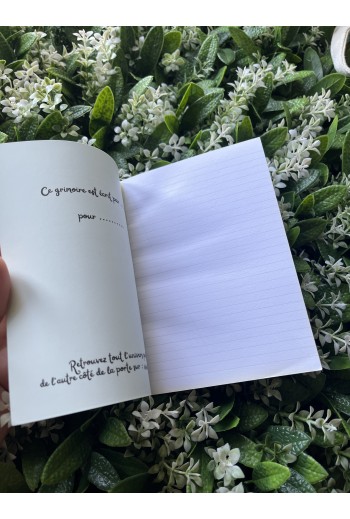 Ce grimoire est écrit par
pour ........
Retrouvez tout l'univers
de l'autre côté de la porte sur